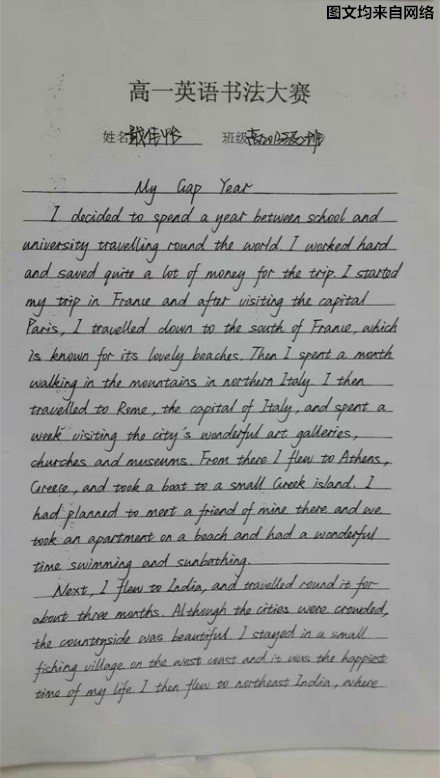 图文均来自网络
高一英语书法大赛
姓名 班级
My Gap Year
I decided to spend a year between school and
university travelling round the world. I worked hard
and saved quite a lot of money for the trip. I started
my trip in France and after visiting the capital
Paris, I travelled down to the south of France, which
is known for its lovely beaches. Then I spent a month
walking in the mountains in northern Italy. I then
travelled to Rome, the capital of Italy, and spent a
week visiting the city's wonderful art galleries,
churches and museums. From there I flew to Athens,
Greece, and took a boat to a small Greek island. I
had planned to meet a friend of mine there and we
took an apartment on a beach and had a wonderful
time swimming and sunbathing.
Next, I flew to India, and travelled round it for
about three months. Although the cities were crowded,
the countryside was beautiful. I stayed in a small
fishing village on the west coast and it was the happiest
time of my life. I then flew to northeast India, where